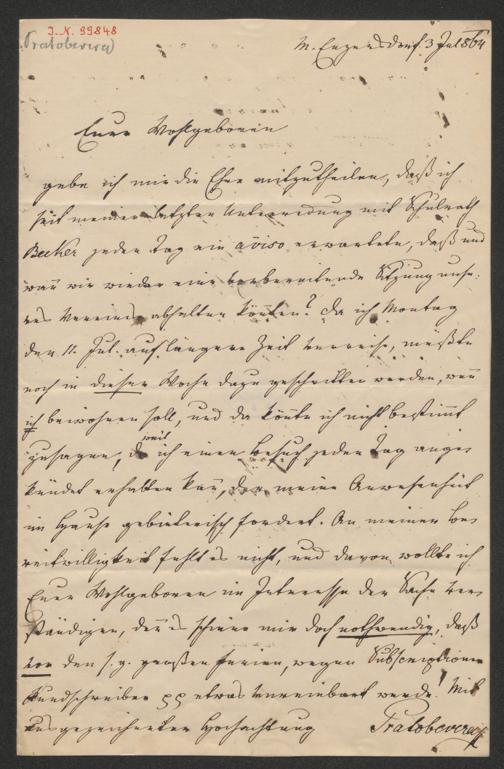 I.N. 99848
Pratobevera
M. Enzersdorf 3 Jul 864
Euer Wohlgeboren
gebe ich mir die Ehre mitzutheilen, daß ich
seit meiner letzten Unterredung mit Schulrath
Becker jeden Tag ein aviso erwartete, daß und
wan wir wieder eine vorbereitende Sitzung unse-
res Vereins abhalten könten? Da ich Montag
den 11. Jul. auf längere Zeit verreise, müßte
noch in dieser Woche dazu geschritten werden, wen
ich beiwohnen soll, und da könte ich nicht bestimt
zusagen, da weil ich einen Besuch jeden Tag ange-
kündet erhalten kan, der meine Anwesenheit
im Hause gebieterisch fordert. An meiner Be-
reitwilligkeit fehlt es nicht, und davon wollte ich
Euer Wohlgeboren im Interesse der Sache ver-
ständigen, den es schiene mir doch nothwendig, daß
vor den s. g. großen Ferien, wegen Subscriptionen
Rundschreiben pp etwas vereinbart werde. Mit
ausgezeichneter Hochachtung Pratobevera